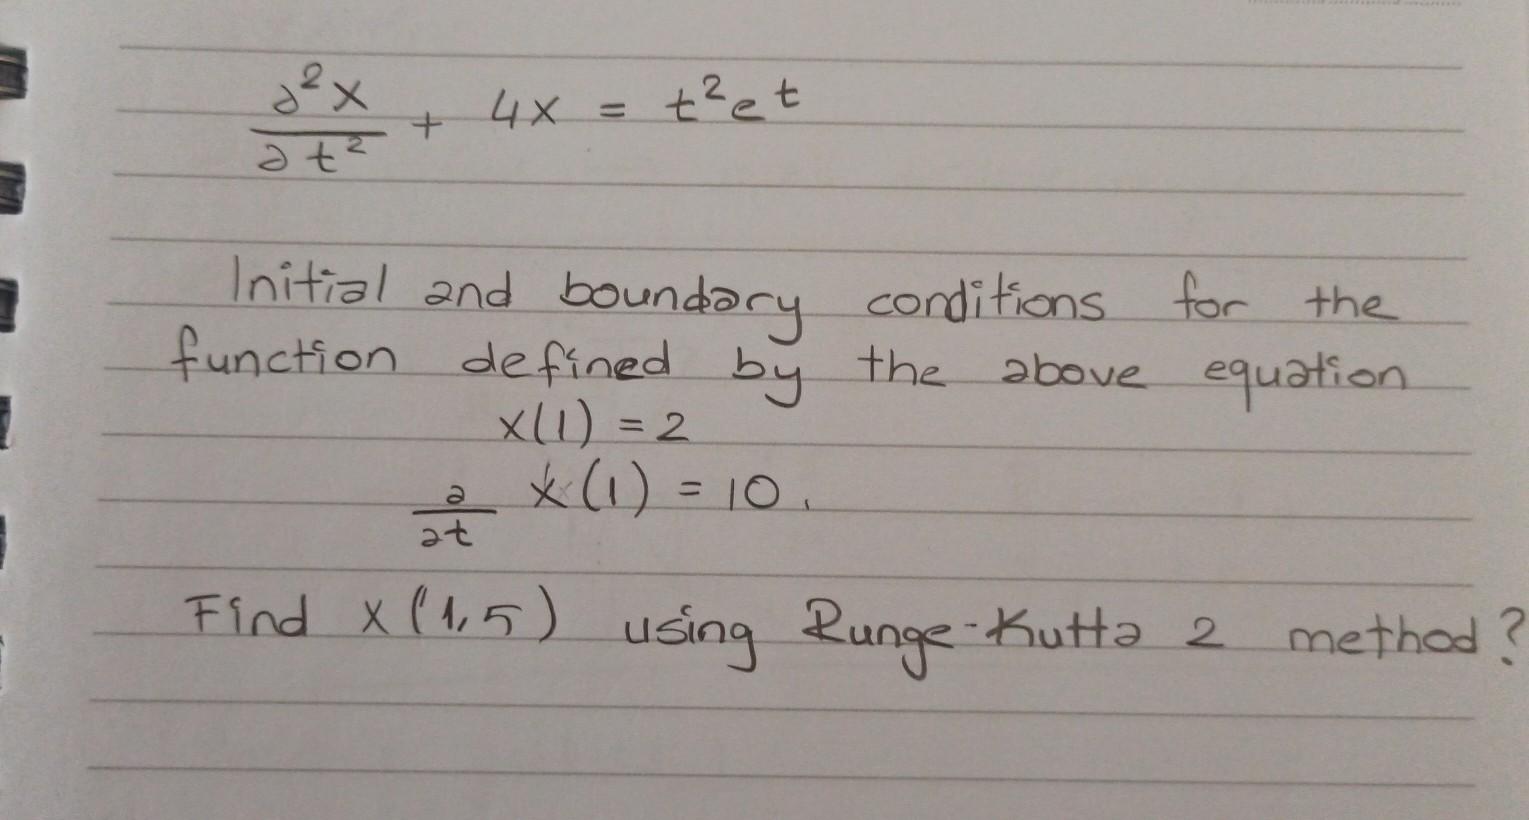 ∂²x/∂t² + 4x = t²eᵗ
Initial and boundary conditions for the
function defined by the above equation
x(1) = 2
∂/∂t x(1) = 10.
Find x(1,5) using Runge-Kutta 2 method?